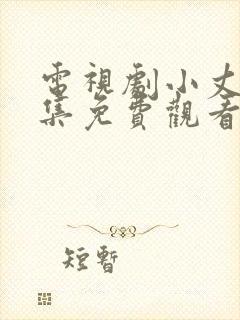 電視劇小丈
集免費觀看
短暫